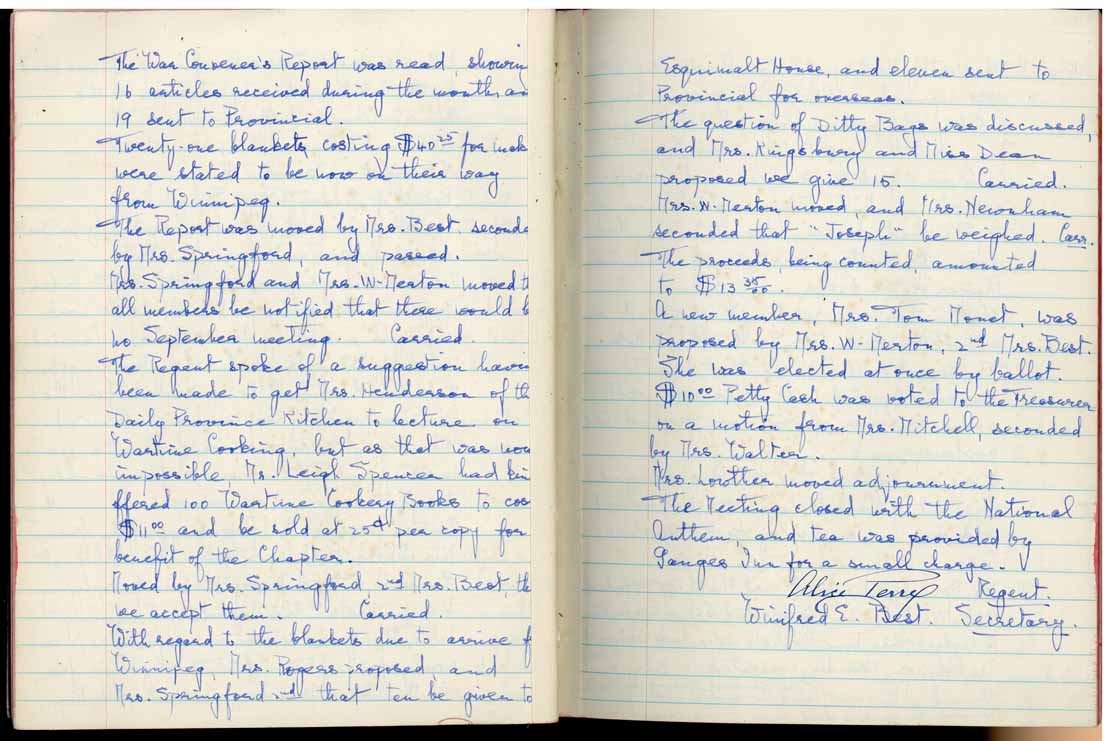 The War Convener's Report was read, showin
16 articles received during the months an
19 sent to Provincial.
Twenty-one blankets costing $40 25 for
were stated to be now on their way
from Winnipeg.
The Report was moved by Mrs. Best, seconde
by Mrs. Springford, and passed.
Mrs. Springford and Mrs. W-Merton moved t
all members be notified that there would b
no September meeting. Carried.
The Regent spoke of a suggestion havin
been made to get Mrs. Henderson of th
Daily Province Kitchen to lecture on
Wartime Cooking, but as that was now
impossible, Mr. Leigh Spencer had kin
ffered 100 Wartime Cookery Books to cos
$11 00 and be sold at 25¢ per copy for
benefit of the Chapter.
Moved by Mrs. Springford, 2nd Mrs. Best, th
we accept them. Carried.
With regard to the blankets due to arrive f
Winnipeg, Mrs. Rogers proposed, and
Mrs. Springford 2nd that ten be given to
Esquimalt House, and eleven sent to
Provincial for overseas.
The question of Ditty Bags was discussed,
and Mrs. Kingsbury and Miss Dean
proposed we give 15. Carried.
Mrs. W-Merton moved, and Mrs. Newnham
seconded that "Joseph" be weighed. Carr.
The proceeds, being counted, amounted
to $13 35/00.
A new member, Mrs. Tom Mouat, was
proposed by Mrs. W-Merton, 2nd Mrs. Best.
She was elected at once by ballot.
$10 00 Petty Cash was voted to the Treasurer
on a motion from Mrs. Mitchell, seconded
by Mrs. Walter.
Mrs. Lowther moved adjournment.
The Meeting closed with the National
Anthem, and tea was provided by
Ganges Inn for a small charge.
Alice Perry Regent.
Winifred E. Best. Secretary.